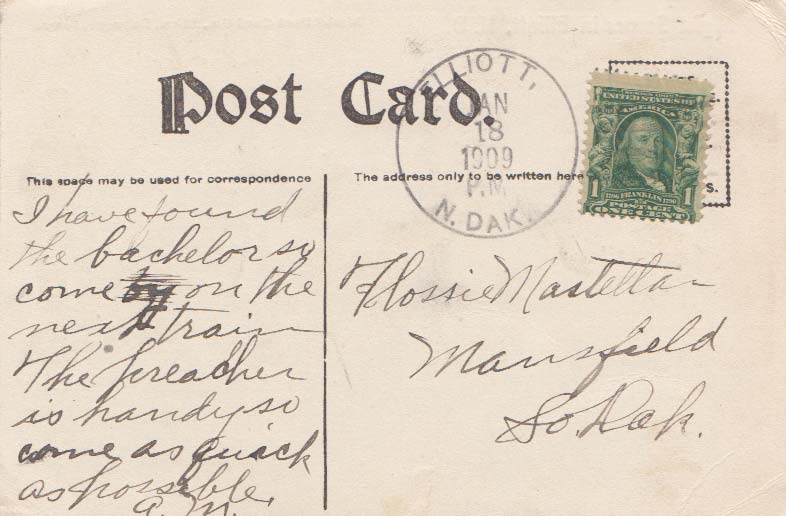 Post Card.
ELLIOTT,
JAN
18
1909
P.M.
N. DAK.
UNITED STATES OF
AMERICA
1
1
FRANKLIN
POSTAGE
ONE CENT
S.
This space may be used for correspondence
The address only to be written here
I have found
the bachelor so
come on the
next train
The preacher
is handy so
come as quick
as possible.
A. M.
Flossie Mastellar
Mansfield
So. Dak.